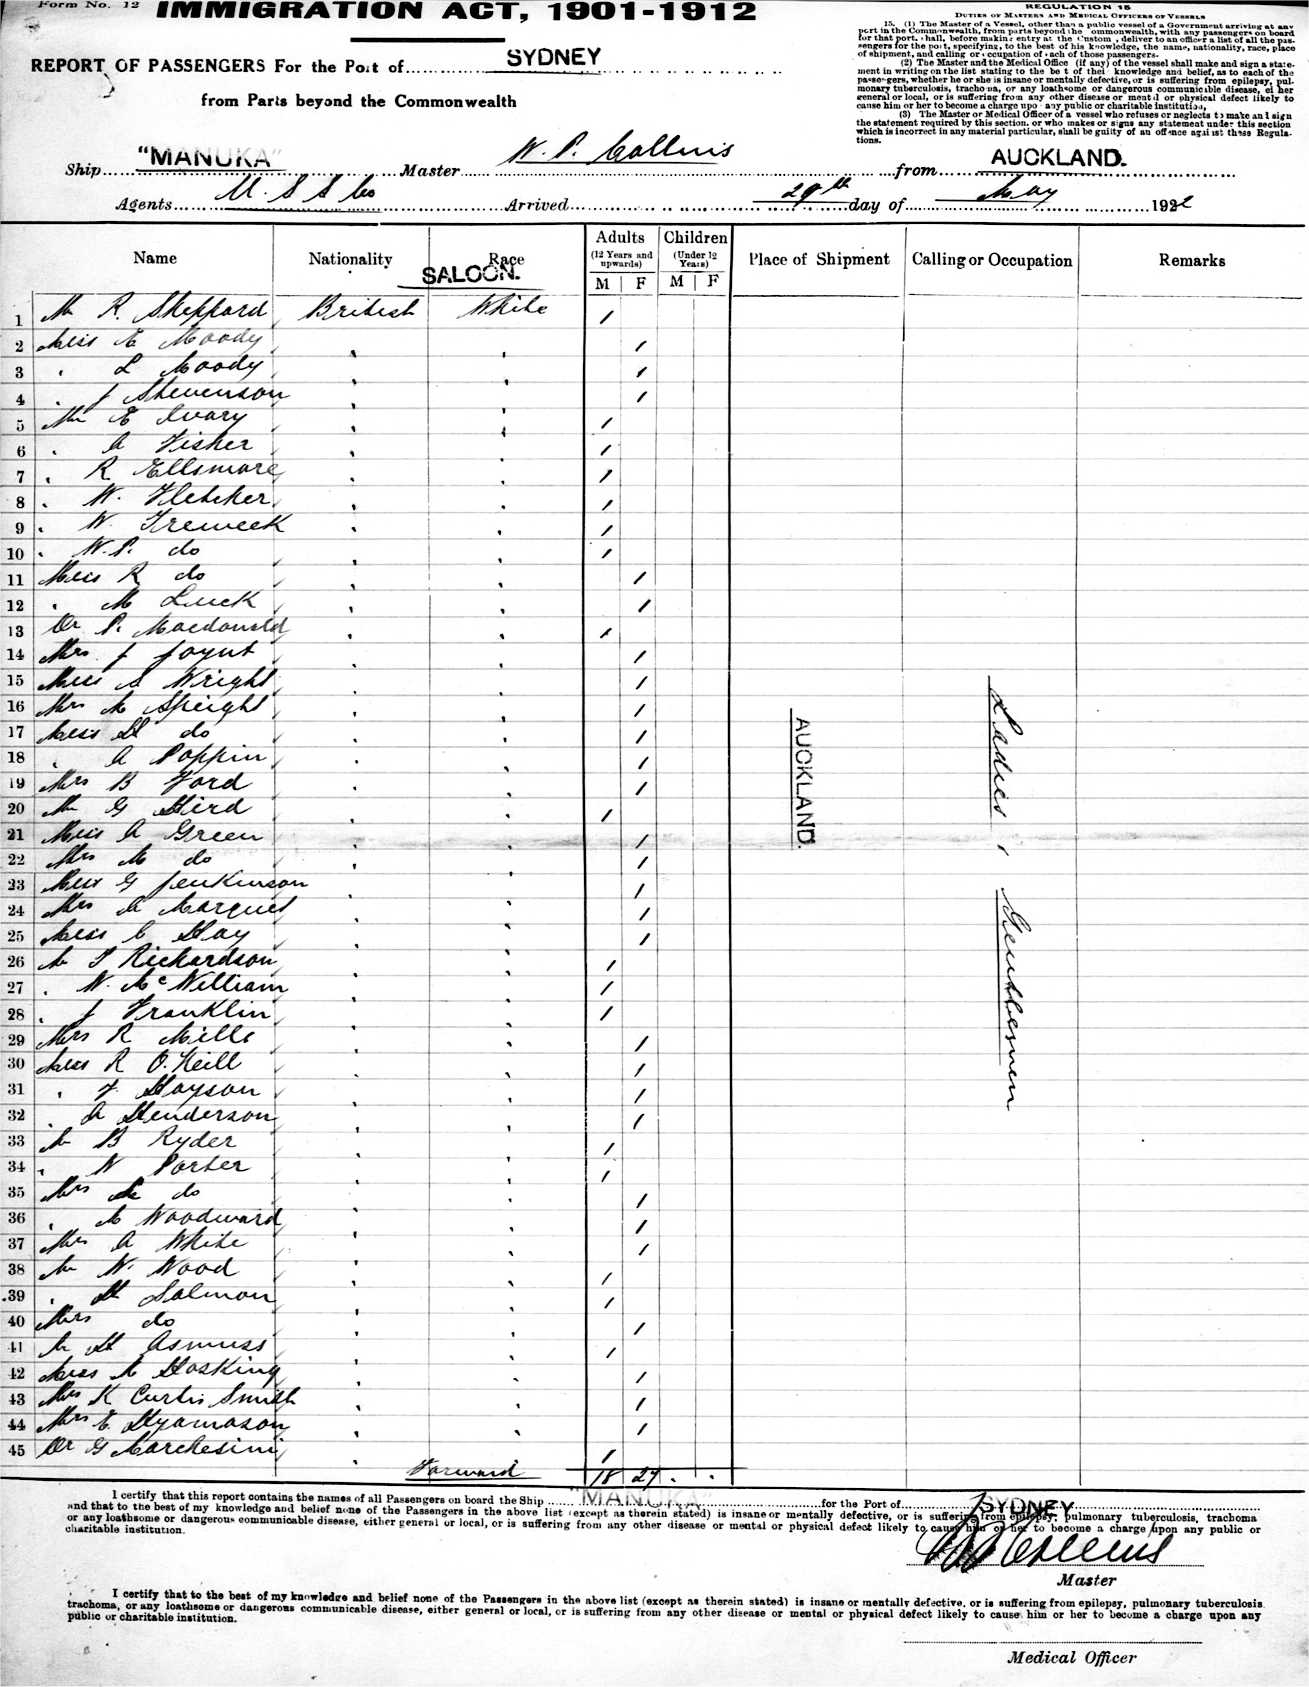 Form No. 12
IMMIGRATION ACT, 1901-1912
REPORT OF PASSENGERS For the Port of SYDNEY
from Parts beyond the Commonwealth
REGULATION 15
DUTIES OF MASTERS AND MEDICAL OFFICERS OF VESSELS
15. (1) The Master of a Vessel, other than a public vessel of a Government arriving at any
port in the Commonwealth, from parts beyond the ommonwealth, with any passengers on board
for that port. hall, before making entry at the Custom , deliver to an officer a list of all the pas-
sengers for the port, specifying, to the best of his knowledge, the name, nationality, race, place
of shipment, and calling or occupation of each of those passengers.
(2) The Master and the Medical Office (if any) of the vessel shall make and sign a state-
ment in writing on the list stating to the be t of thei knowledge and belief, as to each of the
passengers, whether he or she is insane or mentally defective, or is suffering from epilepsy, pul-
monary tuberculosis, trachoma, or any loathsome or dangerous communicable disease, ei her
general or local, or is suffering from any other disease or mental or physical defect likely to
cause him or her to become a charge upo any public or charitable institution,
(3) The Master or Medical Officer of a vessel who refuses or neglects to make an l sign
the statement required by this section. or who makes or signs any statement under this section
which is incorrect in any material particular, shall be guilty of an offence against these Regula-
tions.
Ship "MANUKA" Master W. P. Collins from AUCKLAND.
Agents U S S Co Arrived 29th day of May 1922
Name Nationality Race Adults (12 Years and upwards) M F Children (Under 12 Years) M F Place of Shipment Calling or Occupation Remarks
SALOON.
1 Mr R. Sheppard British White /
2 Miss E Moody /
3 " L Moody /
4 " J Stevenson /
5 Mr E Ivary /
6 " A Fisher /
7 " R Ellsmore /
8 " W. Fletcher /
9 " W. Treweek /
10 " W.P. do /
11 Miss R do /
12 " M Luck /
13 Dr P. Macdonald /
14 Mrs J Joynt /
15 Miss A Wright /
16 Mrs M Speight /
17 Miss H do /
18 " A Poppin /
19 Mrs B Ford /
20 Mr G Hird /
21 Miss A Green /
22 Mrs M do /
23 Miss G Jenkinson /
24 Mrs A Marquet /
25 Miss C Hay /
26 Mr T Richardson /
27 " W. McWilliam /
28 " J Franklin /
29 Mrs R Mills /
30 Miss R O.Neill /
31 " F Hayson /
32 " A Henderson /
33 Mr B Ryder /
34 " W Porter /
35 Mrs do /
36 " M Woodward /
37 Mrs A White /
38 Mr W. Wood /
39 " H Salmon /
40 Mrs do /
41 Mr H Asmuss /
42 Miss M Hosking /
43 Mrs K Curtis Smith /
44 Mrs E. Hyamason /
45 Dr G Marchesini /
AUCKLAND.
Ladies & Gentlemen
Forward 18 27 . .
I certify that this report contains the names of all Passengers on board the Ship "MANUKA" for the Port of SYDNEY
and that to the best of my knowledge and belief none of the Passengers in the above list (except as therein stated) is insane or mentally defective, or is suffering from epilepsy, pulmonary tuberculosis, trachoma
or any loathsome or dangerous communicable disease, either general or local, or is suffering from any other disease or mental or physical defect likely to cause him or her to become a charge upon any public or
charitable institution.
W P Collins
Master
I certify that to the best of my knowledge and belief none of the Passengers in the above list (except as therein stated) is insane or mentally defective, or is suffering from epilepsy, pulmonary tuberculosis
trachoma, or any loathsome or dangerous communicable disease, either general or local, or is suffering from any other disease or mental or physical defect likely to cause him or her to become a charge upon any
public or charitable institution.
Medical Officer